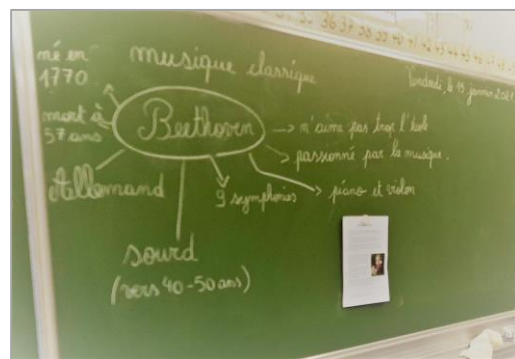 35 36 37 38 39 40 41 42 43 44 45 46
né en
1770
musique classique
Vendredi, le 15 janvier 2021
mort à
57 ans
Beethoven
→ n'aime pas trop l'école
→ passionné par la musique.
Allemand
9 symphonies
→ piano et violon
sourd
(vers 40-50 ans)